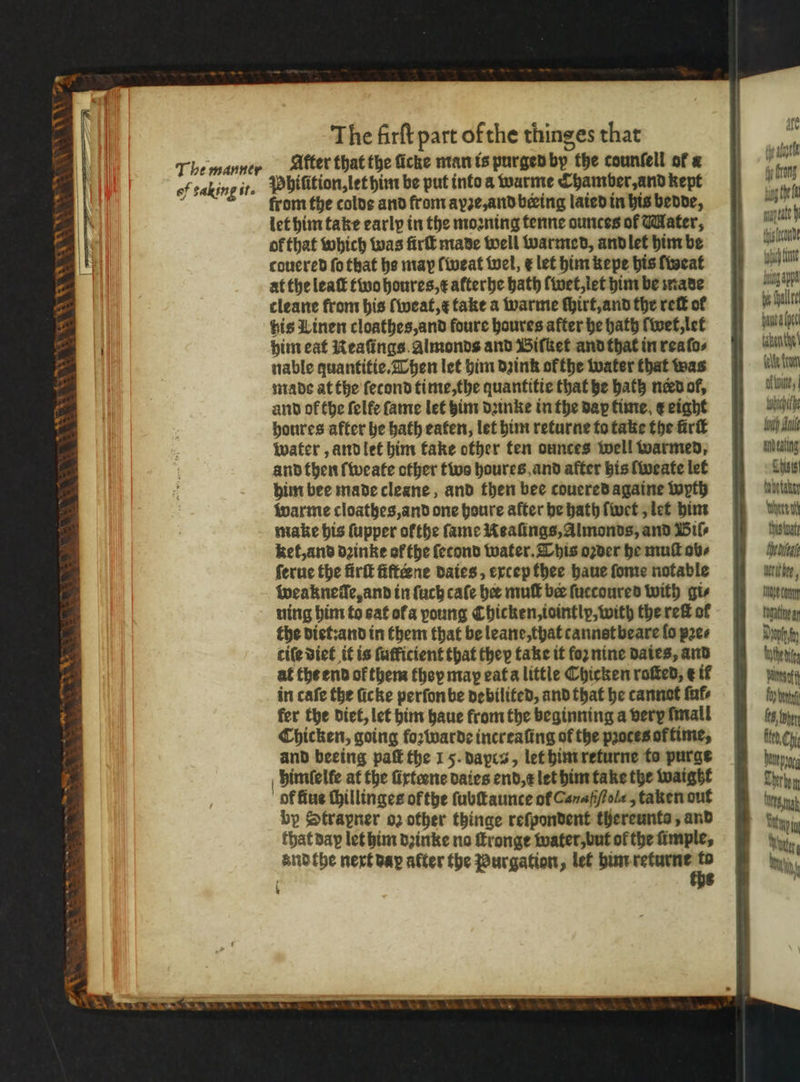 The first part of the thinges that
The manner
of taking it.
After that the sicke man is purged by the counsell of a
Phisition, let him be put into a warme Chamber, and kept
from the colde and from ayre, and béeing laied in his bedde,
let him take early in the morning tenne ounces of Water,
of that which was first made well warmed, and let him be
couered so that he may sweat wel, & let him kepe his sweat
at the least two houres, & after he hath swet, let him be made
cleane from his sweat, & take a warme shirt, and the rest of
his Linen cloathes, and foure houres after he hath swet, let
him eat Reasings. Almonds and Bisket and that in reaso-
nable quantitie. Then let him drink of the water that was
made at the second time, the quantitie that he hath néed of,
and of the selfe same let him drinke in the day time, & eight
houres after he hath eaten, let him returne to take the first
water, and let him take other ten ounces well warmed,
and then sweate other two houres, and after his sweate let
him bee made cleane, and then bee couered againe wyth
warme cloathes, and one houre after he hath swet, let him
make his supper of the same Reasings, Almonds, and Bis-
ket, and drinke of the second water. This order he must ob-
serue the first fiftéene daies, excep thee haue some notable
weaknesse, and in such case hée must bée succoured with gi-
uing him to eat of a young Chicken, iointly, with the rest of
the diet: and in them that be leane, that cannot beare so pre-
cise diet it is sufficient that they take it for nine daies, and
at the end of them they may eat a little Chicken rosted, & if
in case the sicke person be debilited, and that he cannot suf-
fer the diet, let him haue from the beginning a very small
Chicken, going forwarde increasing of the proces of time,
and beeing past the 15. dayes, let him returne to purge
himselfe at the sixtéene daies end, & let him take the waight
of fiue shillinges of the substaunce of Canafistola, taken out
by Strayner or other thinge respondent thereunto, and
that day let him drinke no stronge water, but of the simple,
and the next day after the Purgation, let him returne to
the